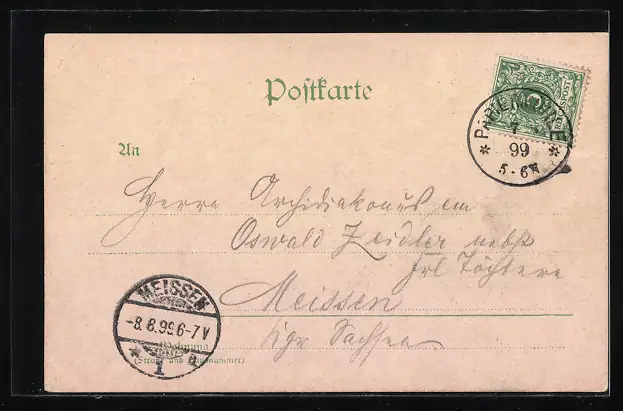 Postkarte
5
REICHSPOST
99
5-6N
An
Herrn Archidiakonus em
Oswald Zeidler nebst
Frl Töchtern
Meissen
Kgr Sachsen
MEISSEN
-8.8.99.6-7V
* 1 *
Wohnung
(Straße und Hausnummer)